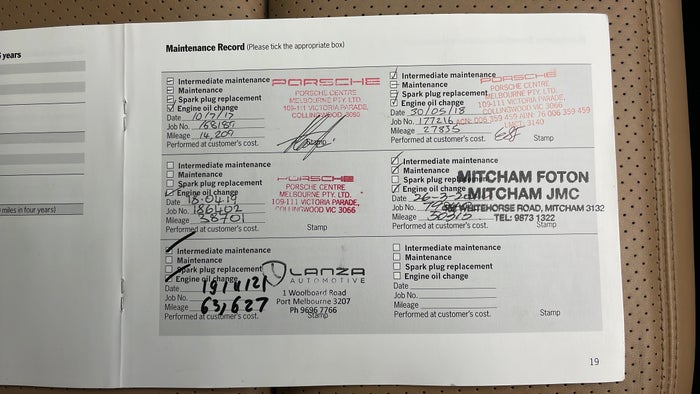 years
miles in four years)
Maintenance Record (Please tick the appropriate box)
Intermediate maintenance
Maintenance
Spark plug replacement
Engine oil change
Date 10/7/17
Job No. 168187
Mileage 14,209
Performed at customer's cost.
PORSCHE
PORSCHE CENTRE
MELBOURNE PTY. LTD.
109-111 VICTORIA PARADE,
COLLINGWOOD VIC 3066
Stamp
Intermediate maintenance
Maintenance
Spark plug replacement
Engine oil change
Date 30/05/18
Job No. 177216
Mileage 27835
Performed at customer's cost.
PORSCHE
PORSCHE CENTRE
MELBOURNE PTY. LTD.
109-111 VICTORIA PARADE,
COLLINGWOOD VIC 3066
ACN: 006 359 459 ABN: 76 006 359 459
3140
Stamp
Intermediate maintenance
Maintenance
Spark plug replacement
Engine oil change
Date 18.04.19
Job No. 186402
Mileage 38701
Performed at customer's cost.
PORSCHE
PORSCHE CENTRE
MELBOURNE PTY. LTD.
109-111 VICTORIA PARADE,
COLLINGWOOD VIC 3066
Stamp
Intermediate maintenance
Maintenance
Spark plug
Engine oil change
Date 26-3-
Job No.
Mileage
Performed at customer's cost.
MITCHAM FOTON
MITCHAM JMC
WHITEHORSE ROAD, MITCHAM 3132
TEL: 9873 1322
Stamp
Intermediate maintenance
Maintenance
Spark plug replacement
Engine oil change
Date 19/4/21
Job No.
Mileage 63,627
Performed at customer's cost.
LANZA
AUTOMOTIVE
1 Woolboard Road
Port Melbourne 3207
Ph 9696 7766
Stamp
Intermediate maintenance
Maintenance
Spark plug replacement
Engine oil change
Date
Job No.
Mileage
Performed at customer's cost.
Stamp
19